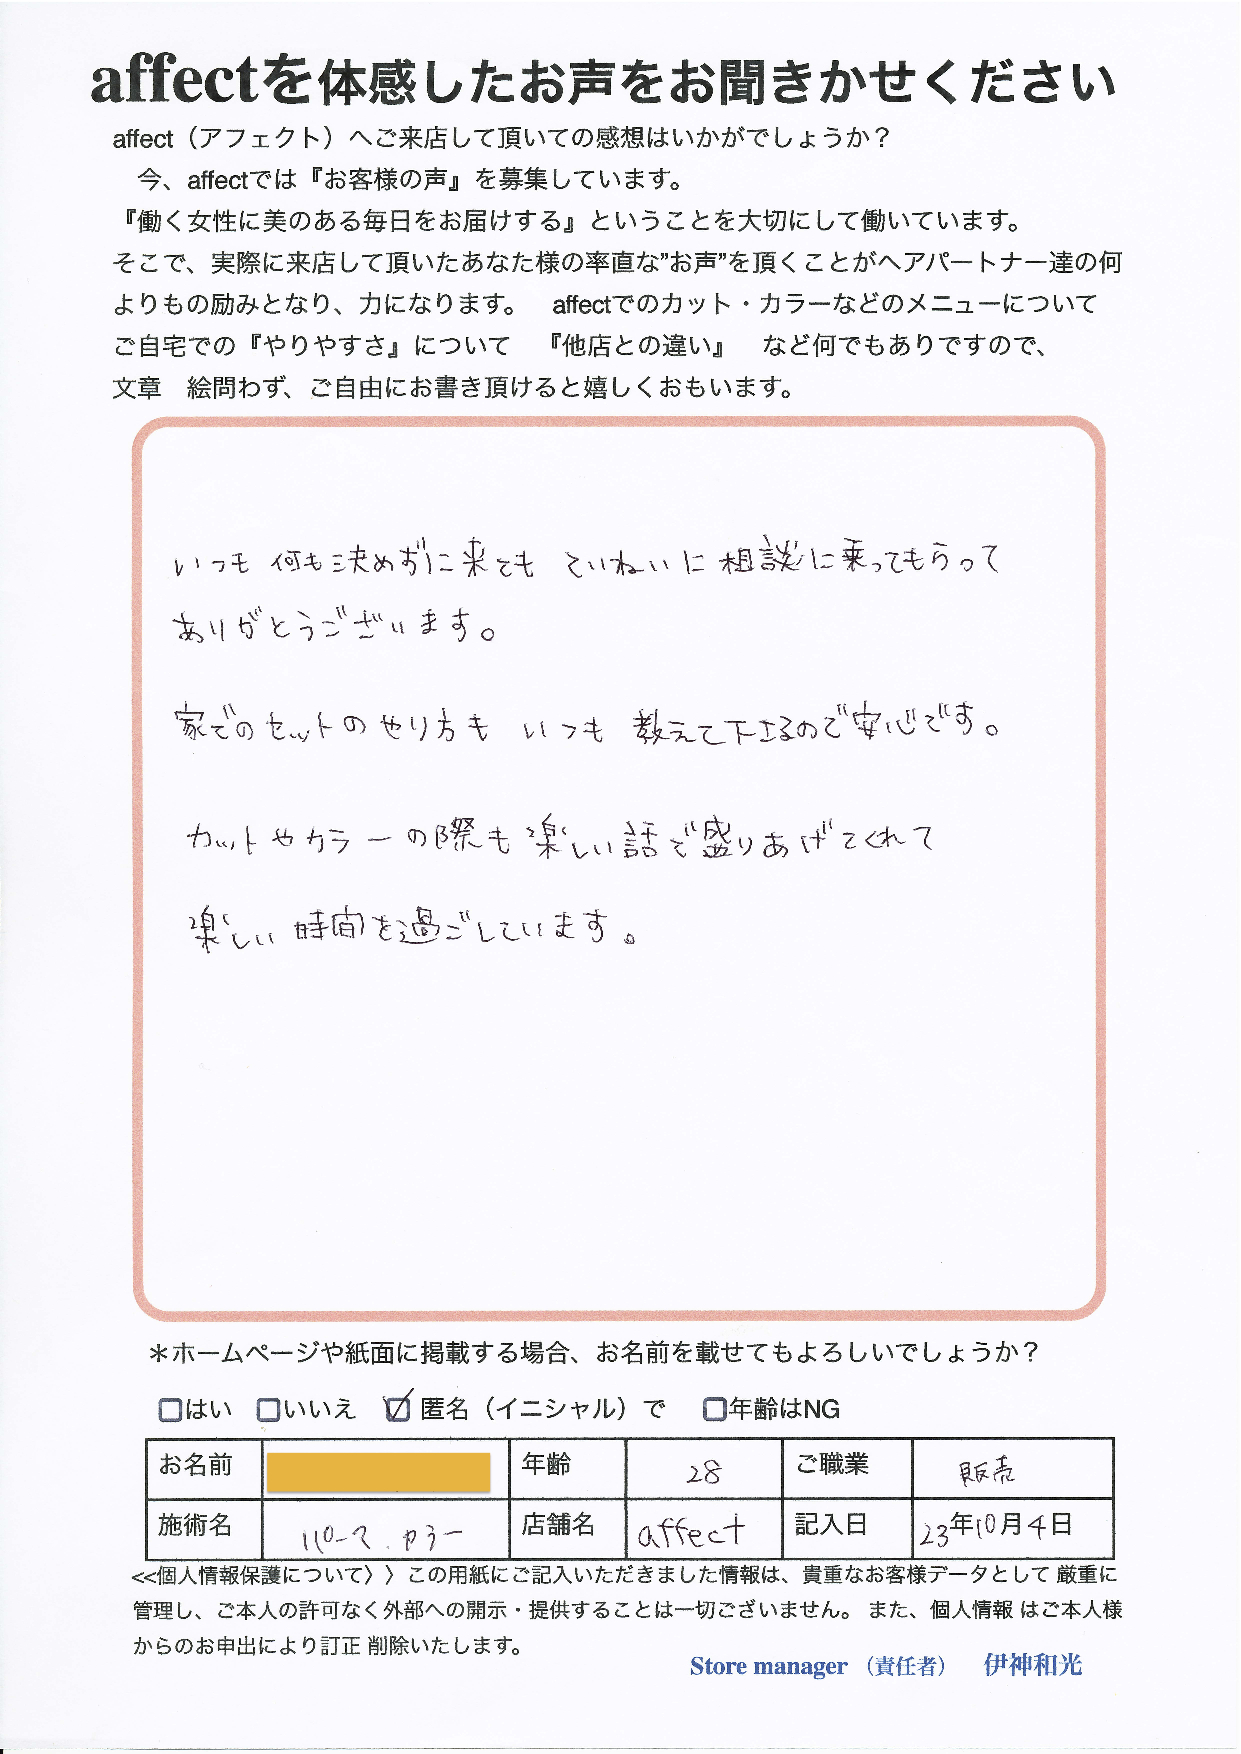 affectを体感したお声をお聞きかせください
affect（アフェクト）へご来店して頂いての感想はいかがでしょうか？
今、affectでは『お客様の声』を募集しています。
『働く女性に美のある毎日をお届けする』ということを大切にして働いています。
そこで、実際に来店して頂いたあなた様の率直な”お声”を頂くことがヘアパートナー達の何
よりもの励みとなり、力になります。　affectでのカット・カラーなどのメニューについて
ご自宅での『やりやすさ』について　『他店との違い』　など何でもありですので、
文章　絵問わず、ご自由にお書き頂けると嬉しくおもいます。
いつも 何も決めずに来ても ていねいに相談に乗ってもらって
ありがとうございます。
家でのセットのやり方も いつも 教えて下さるので安心です。
カットやカラーの際も楽しい話で盛りあげてくれて
楽しい時間を過ごしています。
＊ホームページや紙面に掲載する場合、お名前を載せてもよろしいでしょうか？
はい いいえ 匿名（イニシャル）で 年齢はNG
お名前 年齢 28 ご職業 販売
施術名 パーマ．カラー 店舗名 affect 記入日 23年10月4日
<<個人情報保護について〉〉この用紙にご記入いただきました情報は、貴重なお客様データとして 厳重に
管理し、ご本人の許可なく外部への開示・提供することは一切ございません。 また、個人情報 はご本人様
からのお申出により訂正 削除いたします。
Store manager （責任者） 伊神和光